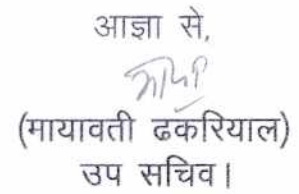 आज्ञा से,
(मायावती ढकरियाल)
उप सचिव।